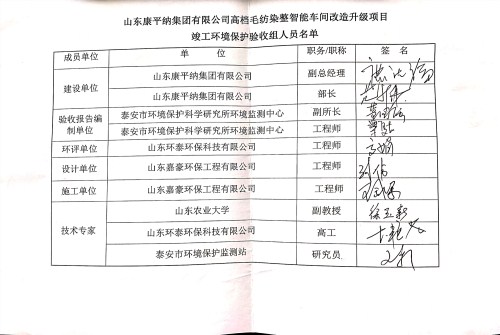 山东康平纳集团有限公司高档毛纺染整智能车间改造升级项目
竣工环境保护验收组人员名单
成员单位 单 位 职务/职称 签 名
建设单位 山东康平纳集团有限公司 副总经理
山东康平纳集团有限公司 部长
验收报告编制单位 泰安市环境保护科学研究所环境监测中心 副所长
泰安市环境保护科学研究所环境监测中心 工程师
环评单位 山东环泰环保科技有限公司 工程师
设计单位 山东嘉豪环保工程有限公司 工程师
施工单位 山东嘉豪环保工程有限公司 工程师
技术专家 山东农业大学 副教授
山东环泰环保科技有限公司 高工
泰安市环境保护监测站 研究员